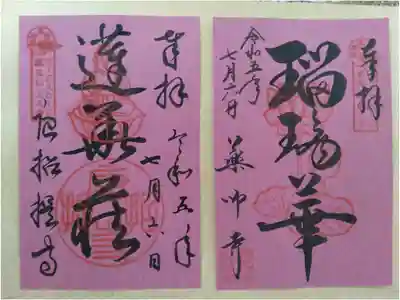 奉拝
瑠璃華
令和五年
七月六日
薬師寺
奉拝
令和五年
七月六日
蓮華蔵
唐招提寺